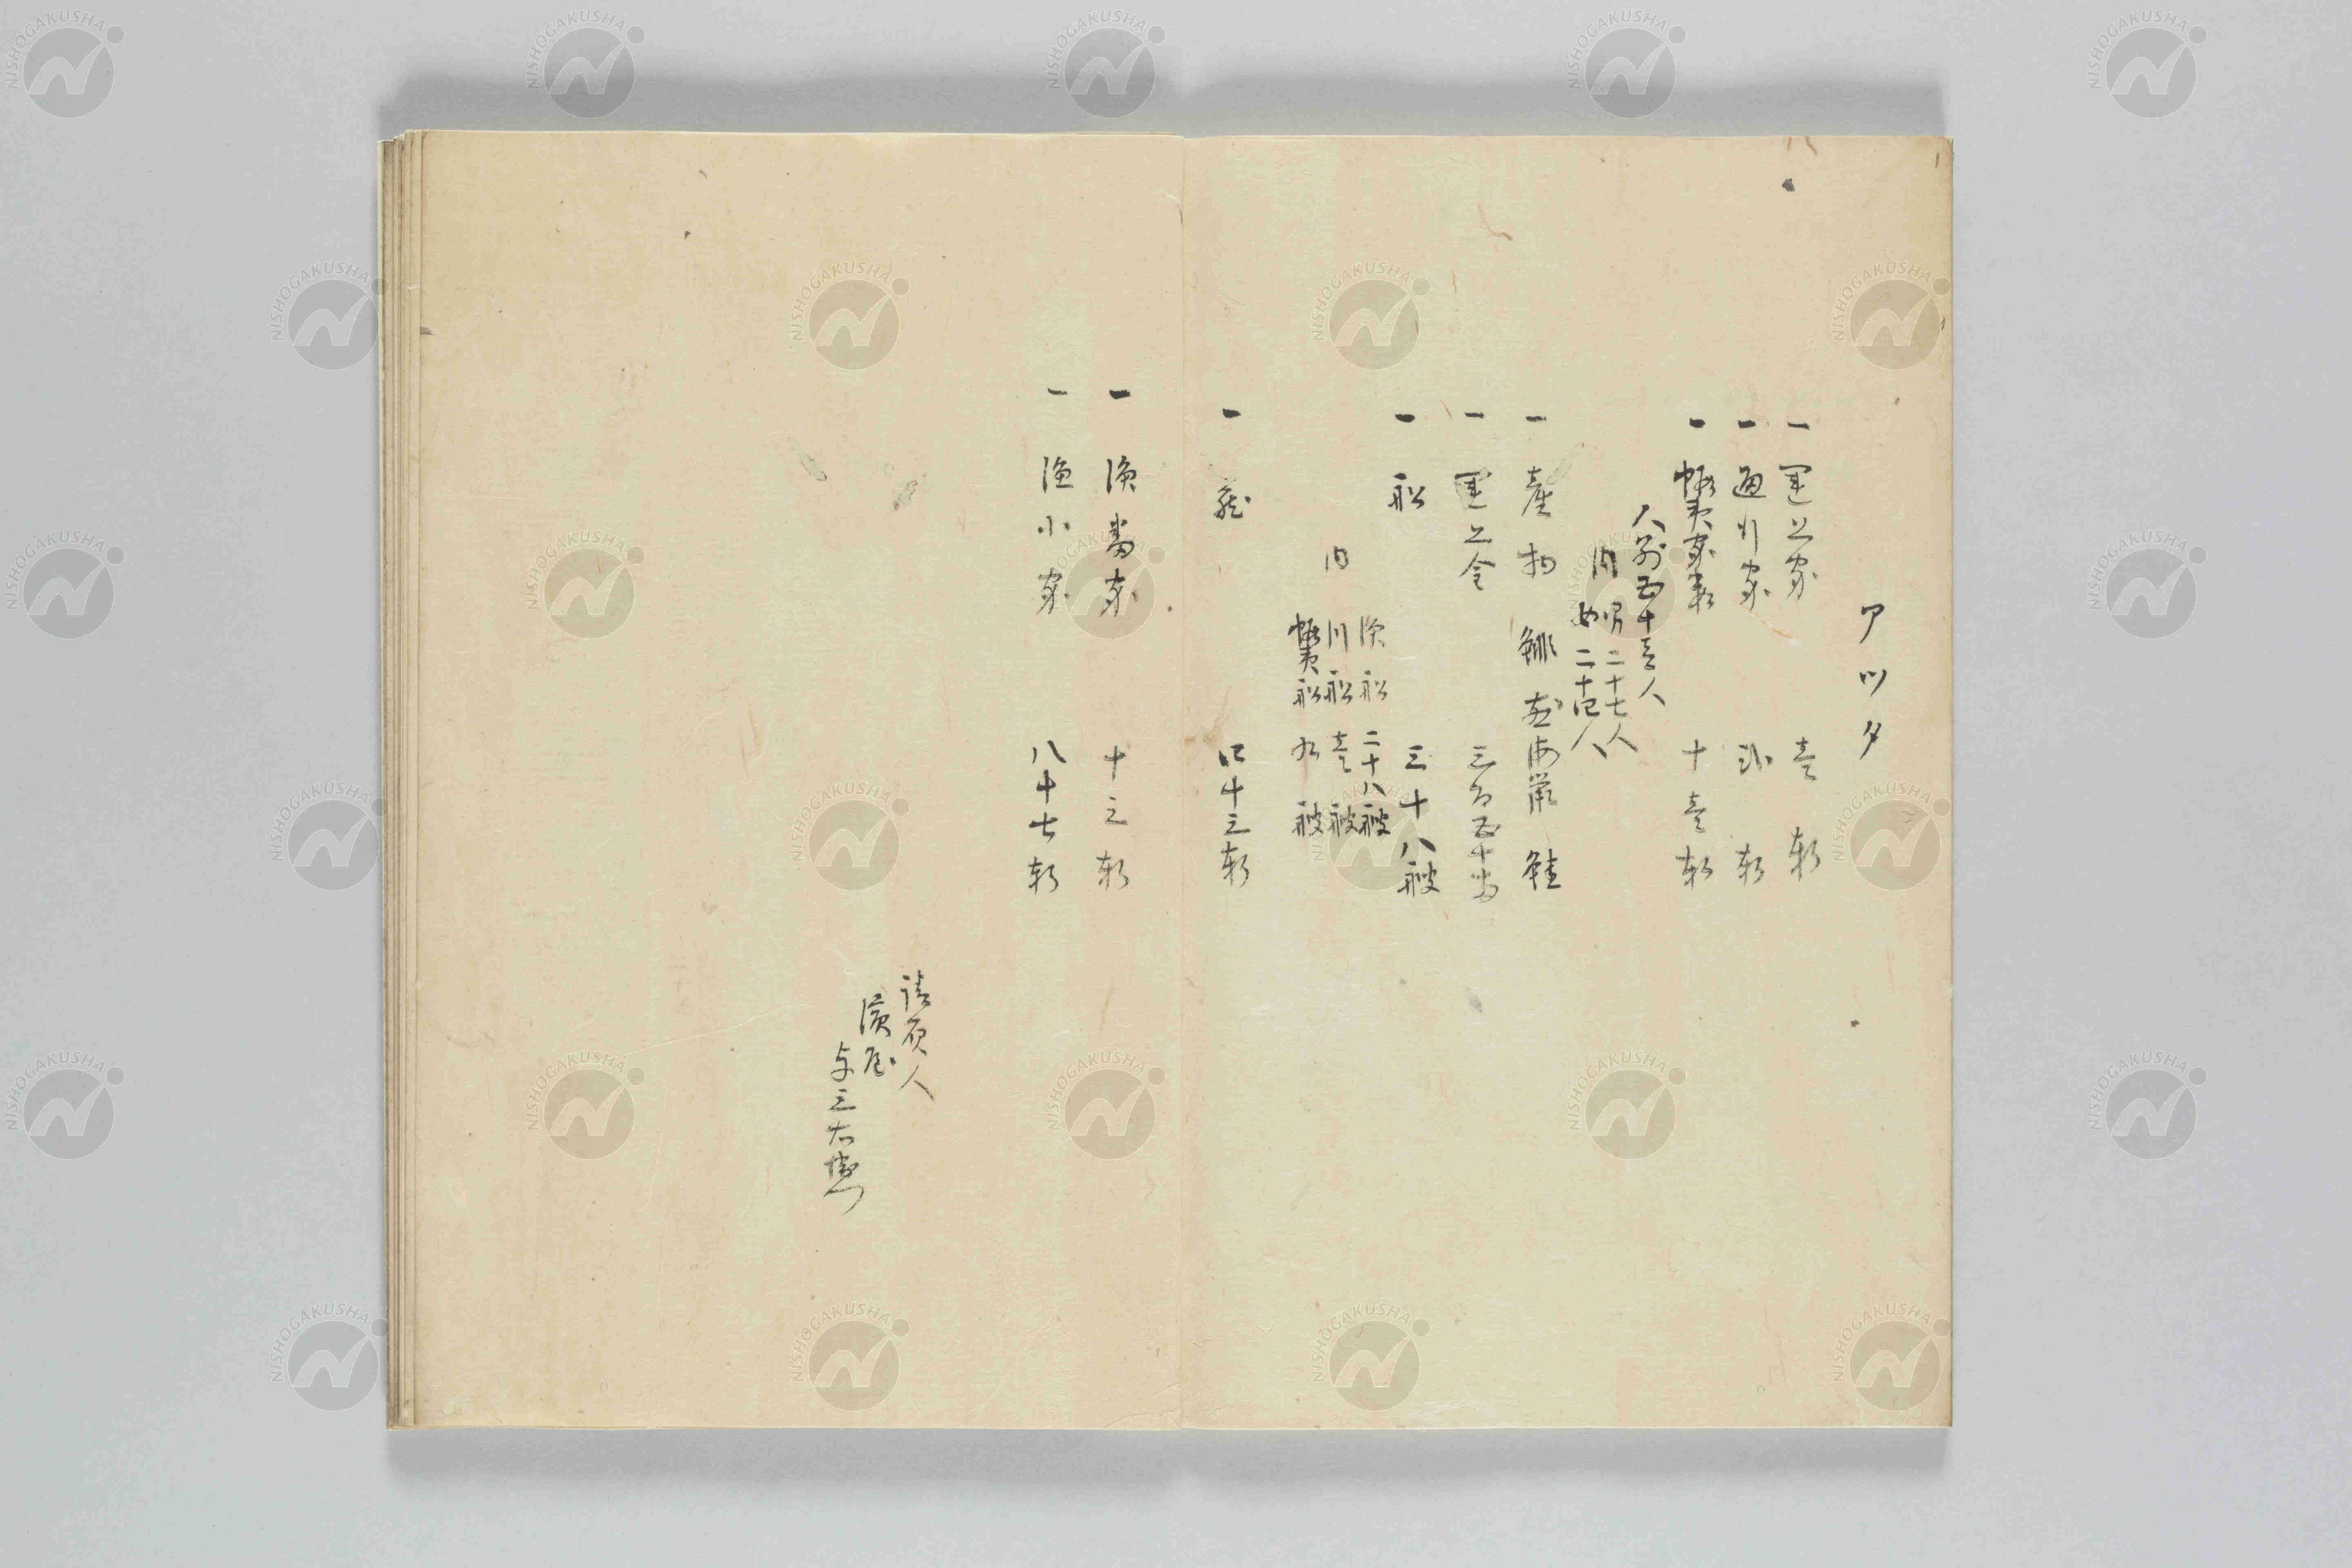 アツタ
一 運上家 壱軒
一 通行家 弐軒
一 蝦夷家数 十壱軒
人別五十壱人
内 男二十七人
女二十四人
一 産物 鯡 海鼠 鮭
一 運上金 三百五十両
一 船 三十八艘
漁船 二十八艘
内 川船 壱艘
蝦夷船 九艘
一 蔵 四十三軒
一 漁番家 十三軒
一 漁小家 八十七軒
請負人
濱屋
与三右衛門
NISHOGAKUSHA